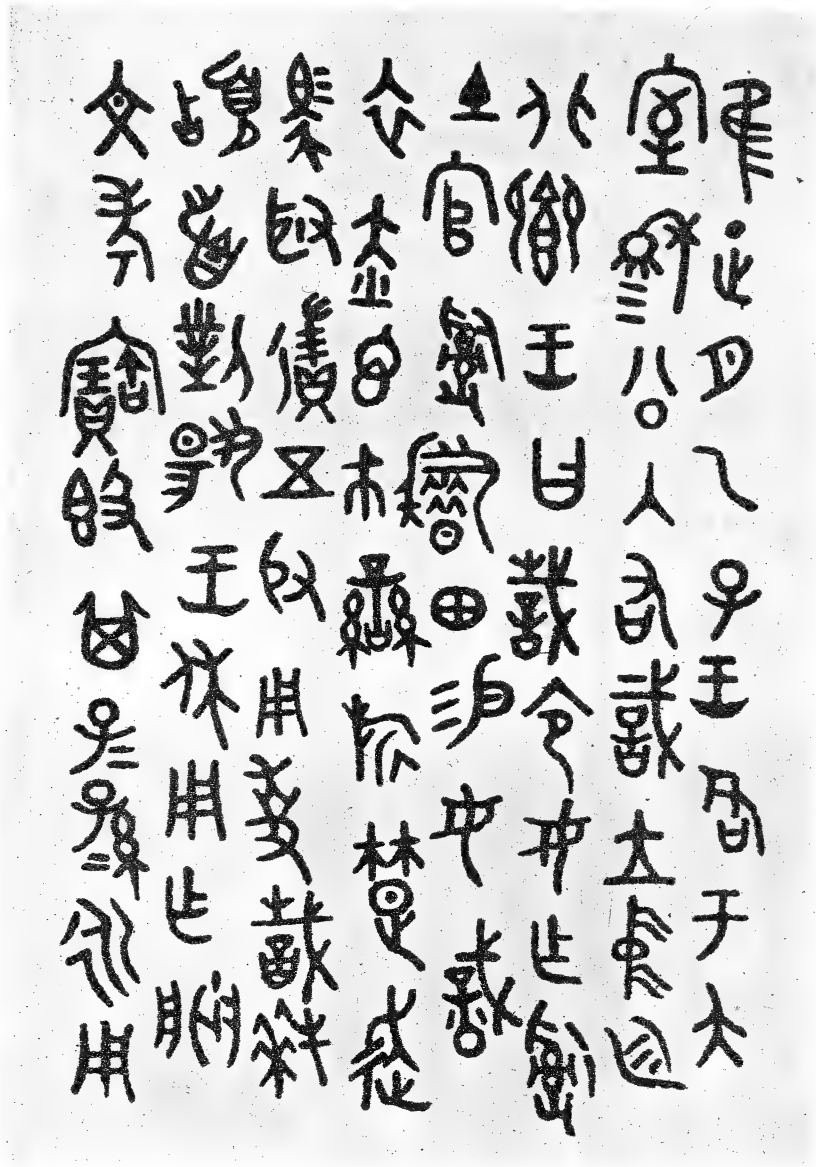 隹正月乙子王各于大
室穆公入右𢧜立中廷
北鄉王曰𢧜令女乍𤔲
土官𤔲耤田易女戠玄
衣赤𢂷巿䜌旂楚走
馬取徵五寽用事𢧜拜
𩒨首對揚王休用乍朕
文考寶𣪘其子=孫=永用